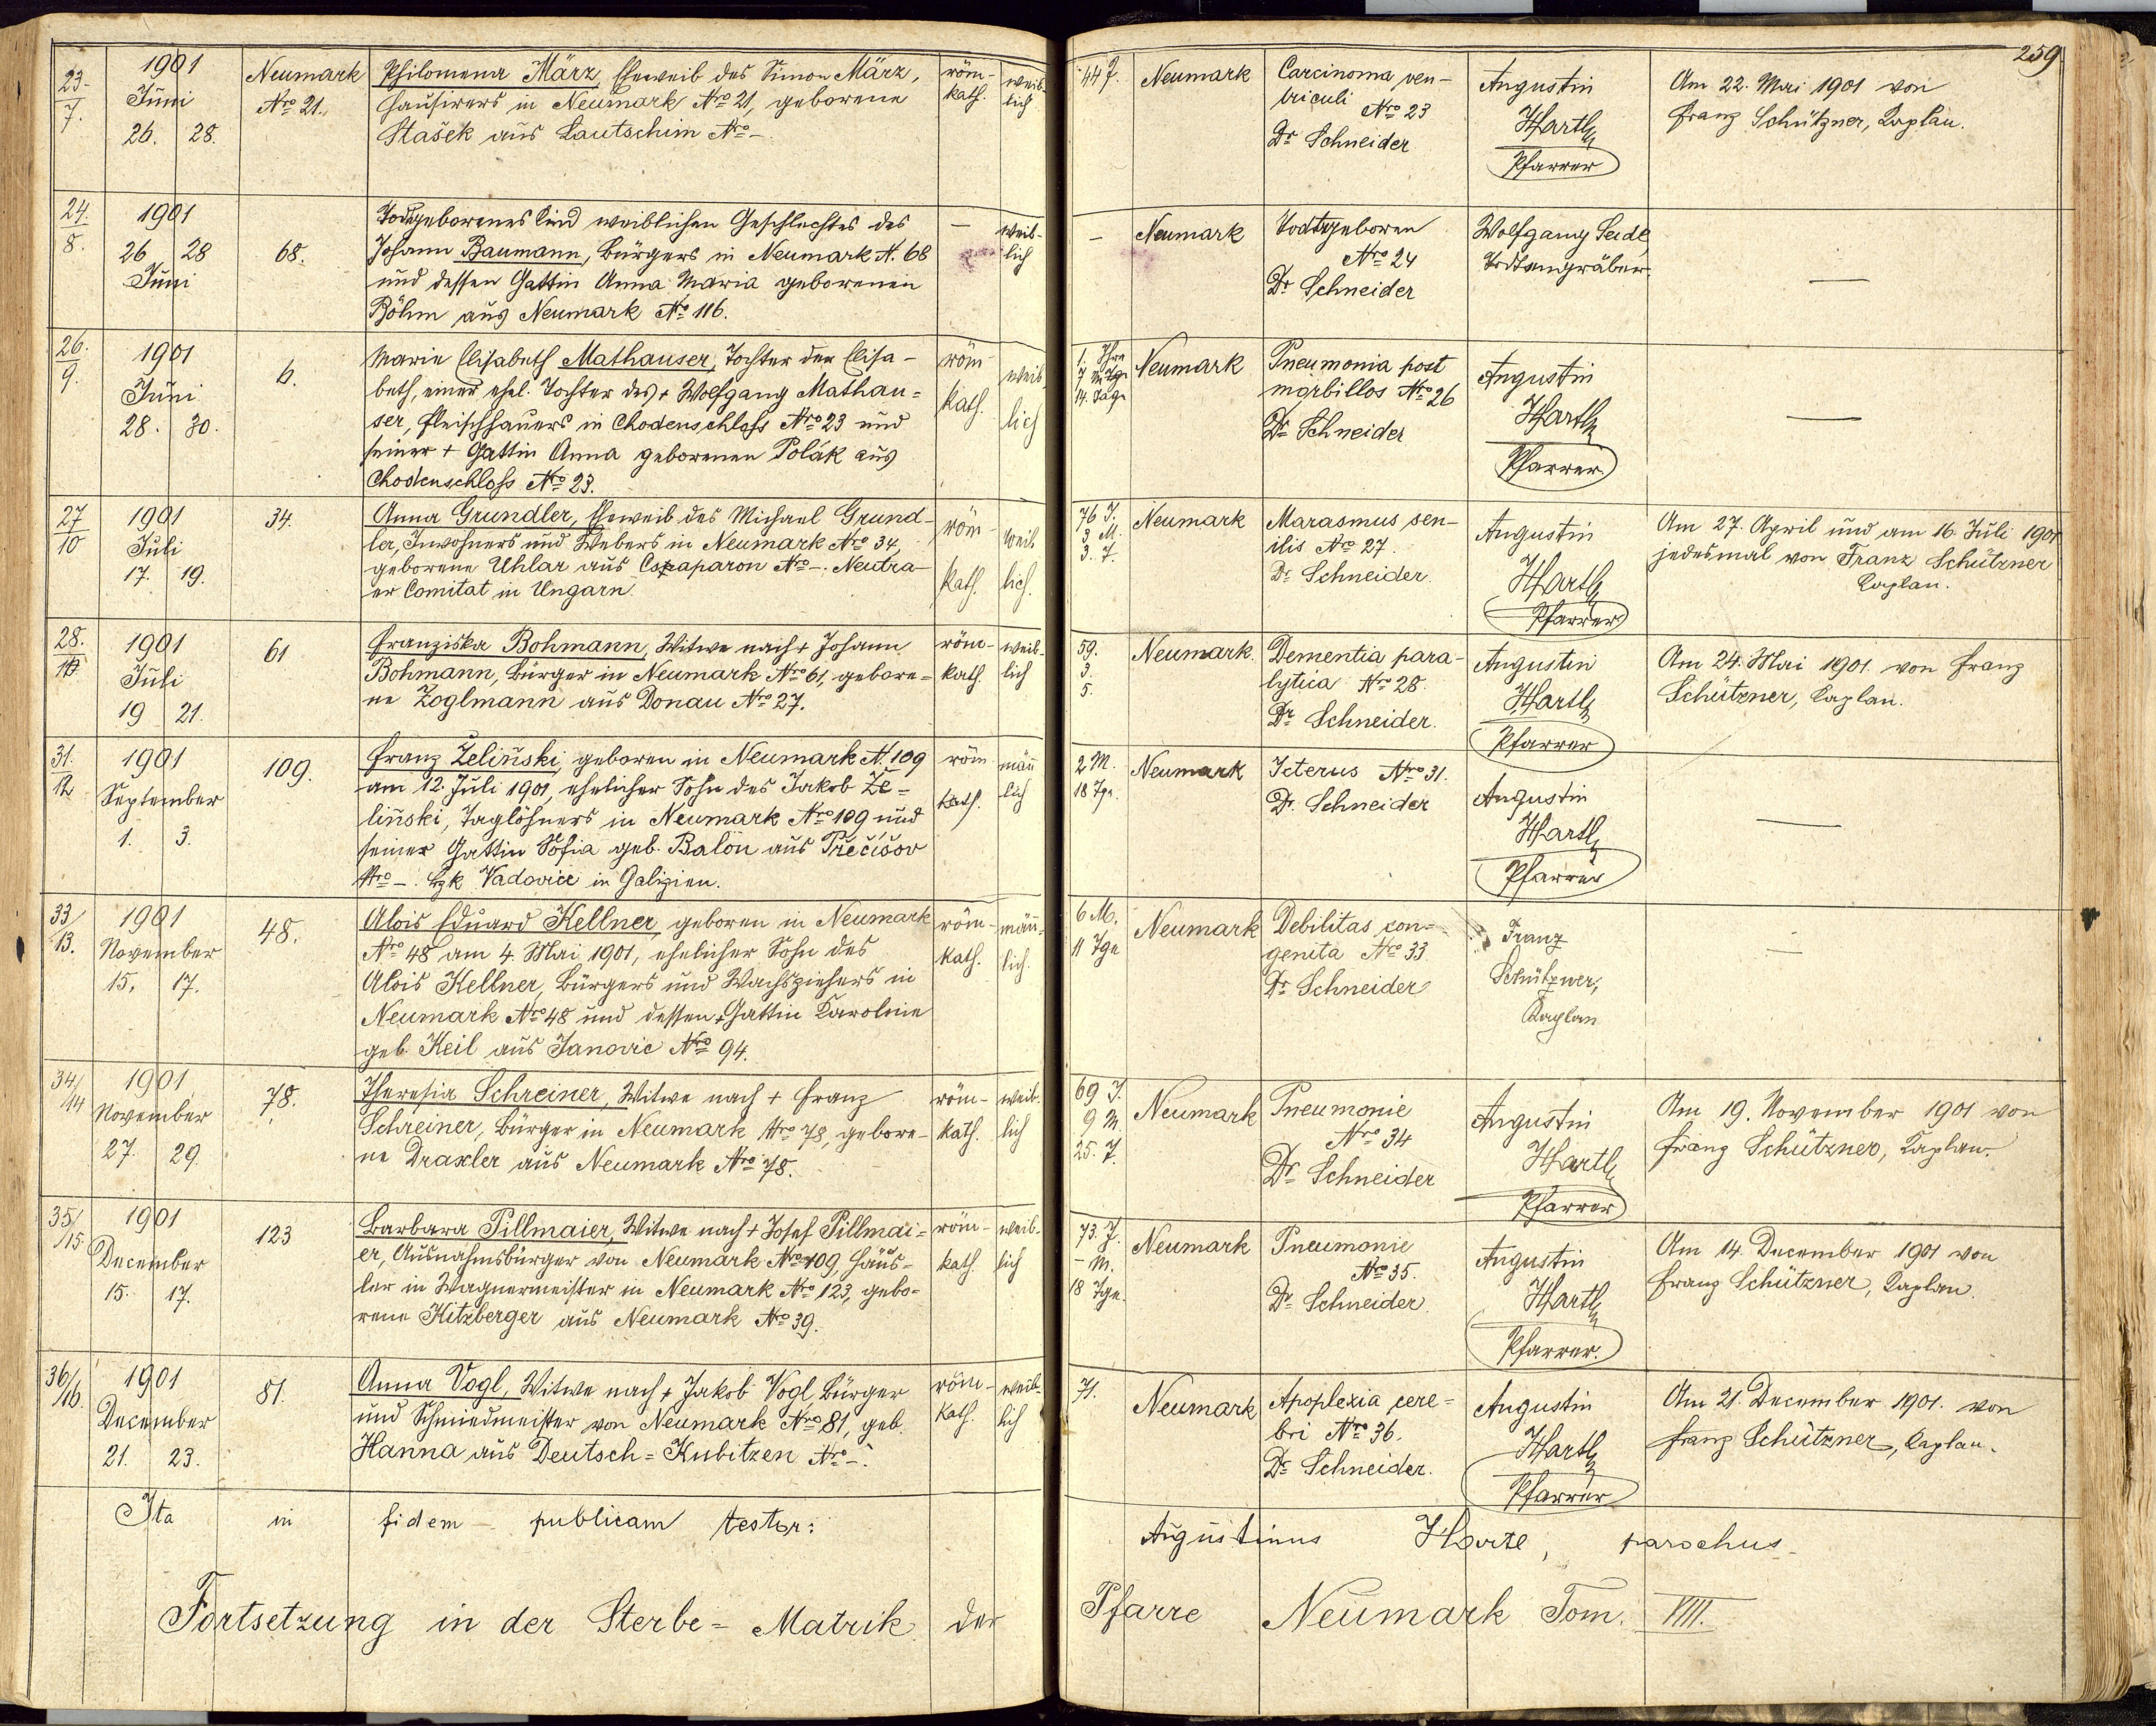 259
23. 7. 1901 Juni 26. 28. Neumark Nro 21.
Philomena März, Eheweib des Simon März,
Hausirers in Neumark Nro 21, geborene
Stašek aus Lautschim Nro –
röm-kath. weiblich
44 J. Neumark
Carcinoma ven-
triculi
Nro 23
Dr Schneider
Augustin
Hartl
Pfarrer
Am 22. Mai 1901 von
Franz Schützner, Kaplan.
24. 8. 1901 26 28 Juni 68.
Todtgeborenes Kind weiblichen Geschlechtes des
Johann Baumann, Bürgers in Neumark N. 68
und dessen Gattin Anna Maria geborenen
Böhm aus Neumark No 116.
– weib-lich
– Neumark
Todtgeboren
Nro 24
Dr Schneider
Wolfgang Seidl
Todtengräber
—
26. 9. 1901 Juni 28. 30. 6.
Marie Elisabeth Mathauser, Tochter der Elisa-
beth, einer ehel. Tochter des + Wolfgang Mathau=
ser, Fleischhauers in Chodenschloss Nro 23 und
seiner + Gattin Anna geborenen Polák aus
Chodenschloss No 23.
röm kath. weiblich
14. Tage Neumark
Pneumonia post
morbillos Nro 26
Dr Schneider
Augustin
Hartl
Pfarrer
—
27 10 1901 Juli 17. 19. 34.
Anna Grundler, Eheweib des Michael Grund-
ler, Inwohners und Webers in Neumark Nro 34,
geborene Uhlar aus Nro –. Neutra-
er Comitat in Ungarn.
röm-kath. weiblich.
76 J. 3 M. 3. T. Neumark
Marasmus sen-
ilis Nro 27.
Dr Schneider.
Augustin
Hartl
Pfarrer
Am 27. April und am 16. Juli 1901
jedesmal von Franz Schützner
Kaplan.
28. 1901 Juli 19 21. 61
Franziska Bohmann, Witwe nach + Johann
Bohmann, Bürger in Neumark Nro 61, gebore=
ne Zoglmann aus Donau Nro 27.
röm-kath. weib-lich
59. 3. 5. Neumark.
Dementia para-
lytica Nro 28.
Dr Schneider.
Augustin
Hartl
Pfarrer
Am 24. Mai 1901 von Franz
Schützner, Kaplan.
31. 12 1901 September 1. 3. 109.
Franz Želiński, geboren in Neumark N. 109
am 12. Juli 1901, ehelicher Sohn des Jakob Že=
liński, Taglöhners in Neumark Nro 109 und
seiner Gattin Sofia geb. Balon aus Přečíšov
Nro –. Bzk Vadovice in Galizien.
röm kath. männ lich
2 M. 18 Tge. Neumark
Icterus Nro 31.
Dr. Schneider
Augustin
Hartl
Pfarrer
—
33/13. 1901 November 15. 17. 48.
Alois Eduard Kellner, geboren in Neumark
Nro 48 am 4. Mai 1901, ehelicher Sohn des
Alois Kellner, Bürgers und Wachsziehers in
Neumark Nro 48 und dessen + Gattin Karoline
geb. Keil aus Janovic Nro 94.
röm-kath. männ=lich.
6 M. 11 Tge Neumark
Debilitas con=
genita Nro 33.
Dr Schneider
Franz
Schützner,
Kaplan
—
34/14 1901 November 27. 29. 78.
Theresia Schreiner, Witwe nach + Franz
Schreiner, Bürger in Neumark Nro 78, gebore-
ne Draxler aus Neumark Nro 78.
röm-kath. weib-lich
69 J. 9 M. 25. T. Neumark
Pneumonie
Nro 34
Dr Schneider
Augustin
Hartl
Pfarrer
Am 19. November 1901 von
Franz Schützner, Kaplan.
35/15 1901 December 15. 17. 123
Barbara Pillmaier, Witwe nach + Josef Pillmai=
er, Ausnahmsbürger von Neumark Nro 109, Häus=
ler in Wagnermeister in Neumark Nro 123, gebo-
rene Hitzberger aus Neumark No 39.
röm-kath. weib-lich
73. J. – M. 18 Tge. Neumark
Pneumonie
Nro 35.
Dr Schneider
Augustin
Hartl
Pfarrer.
Am 14. December 1901 von
Franz Schützner, Kaplan
36/16. 1901 December 21. 23. 81.
Anna Vogl, Witwe nach + Jakob Vogl Bürger
und Schmiedmeister von Neumark Nro 81, geb.
Hanna aus Deutsch=Kubitzen Nro –.
röm-kath. weib-lich
71. Neumark
Apoplexia cere=
bri Nro 36.
Dr Schneider.
Augustin
Hartl
Pfarrer
Am 21. December 1901. von
Franz Schützner, Kaplan.
Ita in fidem publicam testor: Augustinus Hartl, parochus
Fortsetzung in der Sterbe=Matrik der Pfarre Neumark Tom. VIII.